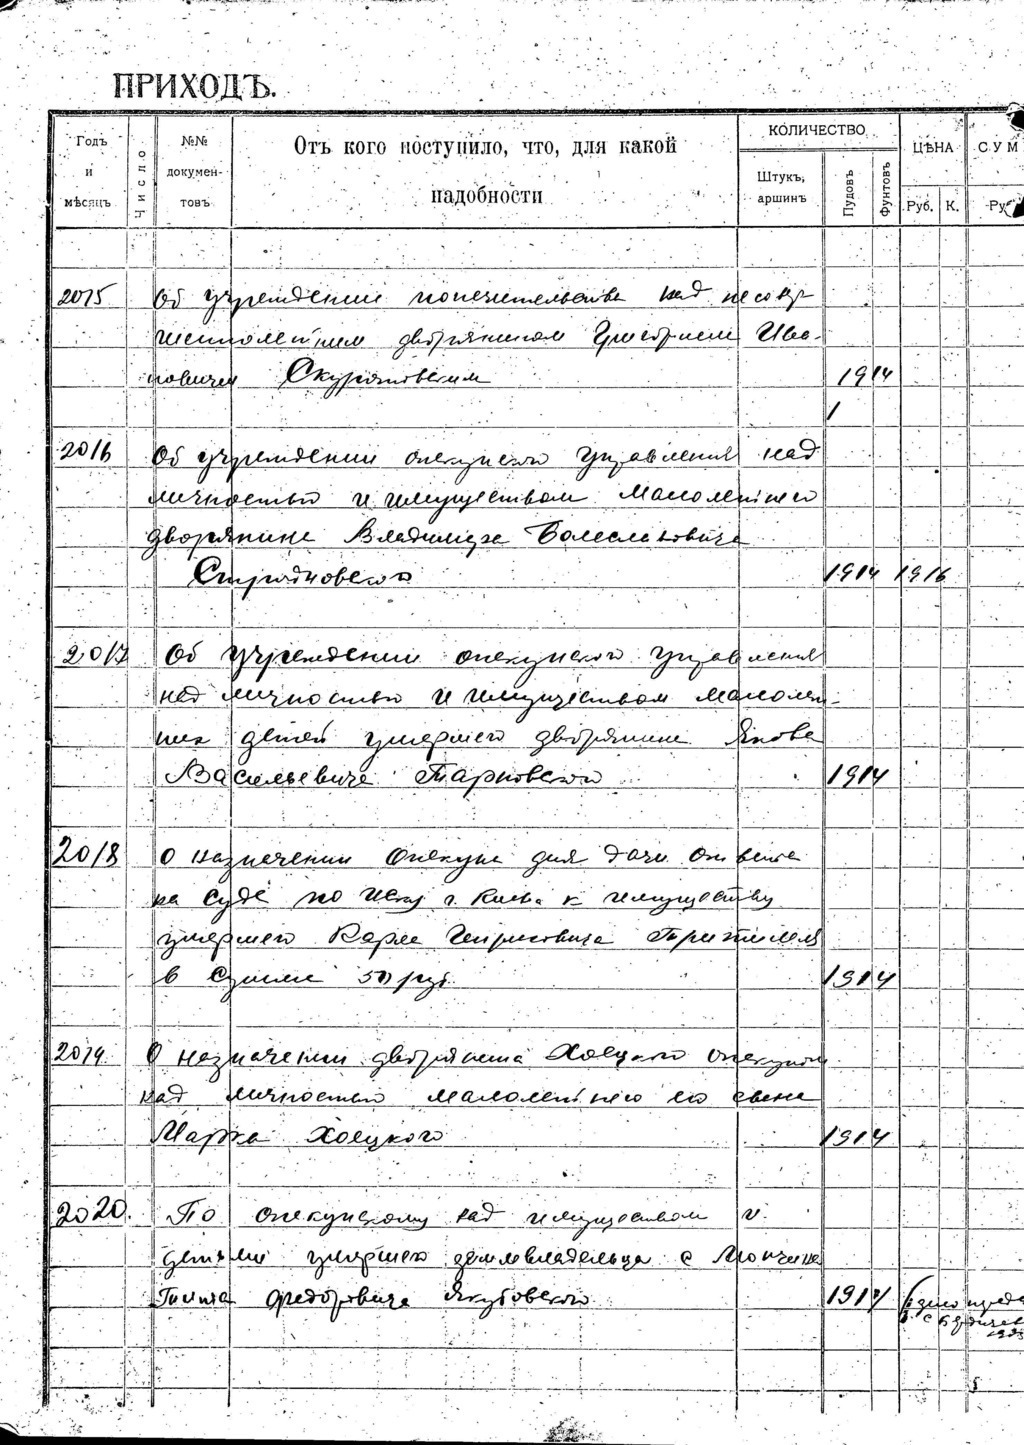 ПРИХОДЪ.
Годъ и мѣсяцъ
Число
№№ документовъ
Отъ кого поступило, что, для какой надобности
КОЛИЧЕСТВО
Штукъ, аршинъ
Пудовъ
Фунтовъ
ЦѢНА
Руб. К.
СУМ
Ру
2015 Об учреждении попечительства над несовер
шеннолетним дворянином Григорием Ива-
новичем Скуратовским 1914
1
2016 Об учреждении опекунского управления над
личностью и имуществом малолетнего
дворянина Владимира Болеславовича
1914 1916
2017 Об учреждении опекунского управления
над личностью и имуществом малолет-
них детей умершего дворянина Якова
Васильевича Тарновского 1914
2018 О назначении опекуна для дачи ответа
на суде по иску г. Киева к имуществу
умершего Карла
в сумме 50 руб. 1914
2019. О назначении дворянина Хоецкого опекуном
над личностью малолетнего его сына
Марка Хоецкого 1914
2020. По опекунскому над имуществом и
детьми умершего землевладельца с
Федоровича Якубовского 1914